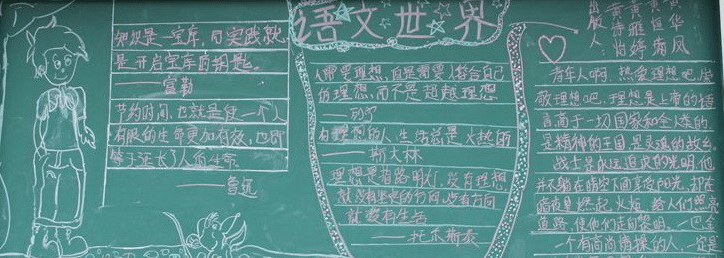 语文世界
知识是一宝库，而实践就
是开启宝库的钥匙。
——富勒
节约时间，也就是使一个人
有限的生命更加有效，也即
等于延长了人的生命
——鲁迅
人需要理想，但是需要人符合自己
的理想，而不是超越理想
有理想的人，生活总是火热的
——斯大林
理想是指路明灯，没有理想
就没有坚定的方向，没有方向
就没有生活
——托尔斯泰
出版人
青年人啊，热爱理想吧，崇
敬理想吧，理想是上帝的语
言高于一切国家和全人类的
是精神的王国是灵魂的故乡
战士是永远追求光明他
并不躺在晴空下面享受阳光，却在
暗夜里燃起火炬，给人们照亮
道路，使他们走向黎明。
一个有高尚情操的人，一定是